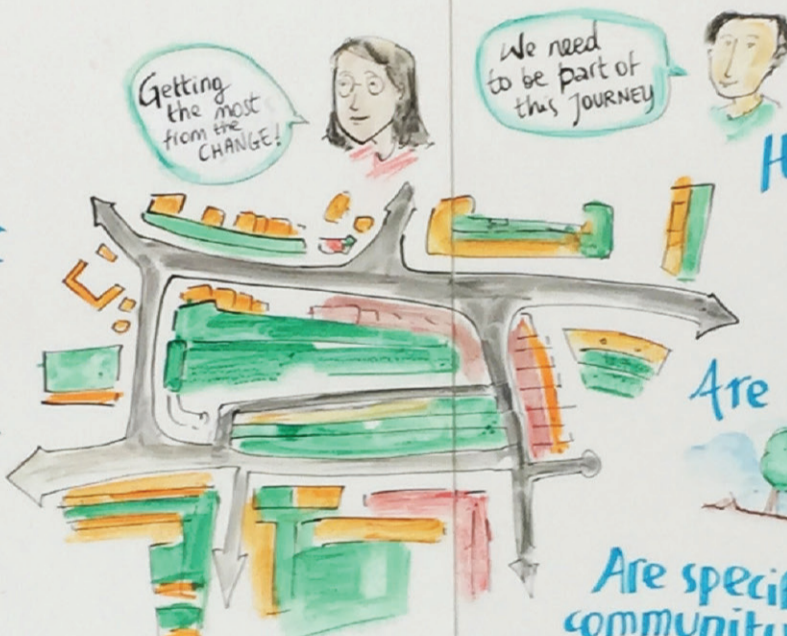 Getting
the most
from the
CHANGE!
We need
to be part of
this JOURNEY
H
Are
Are specif
community